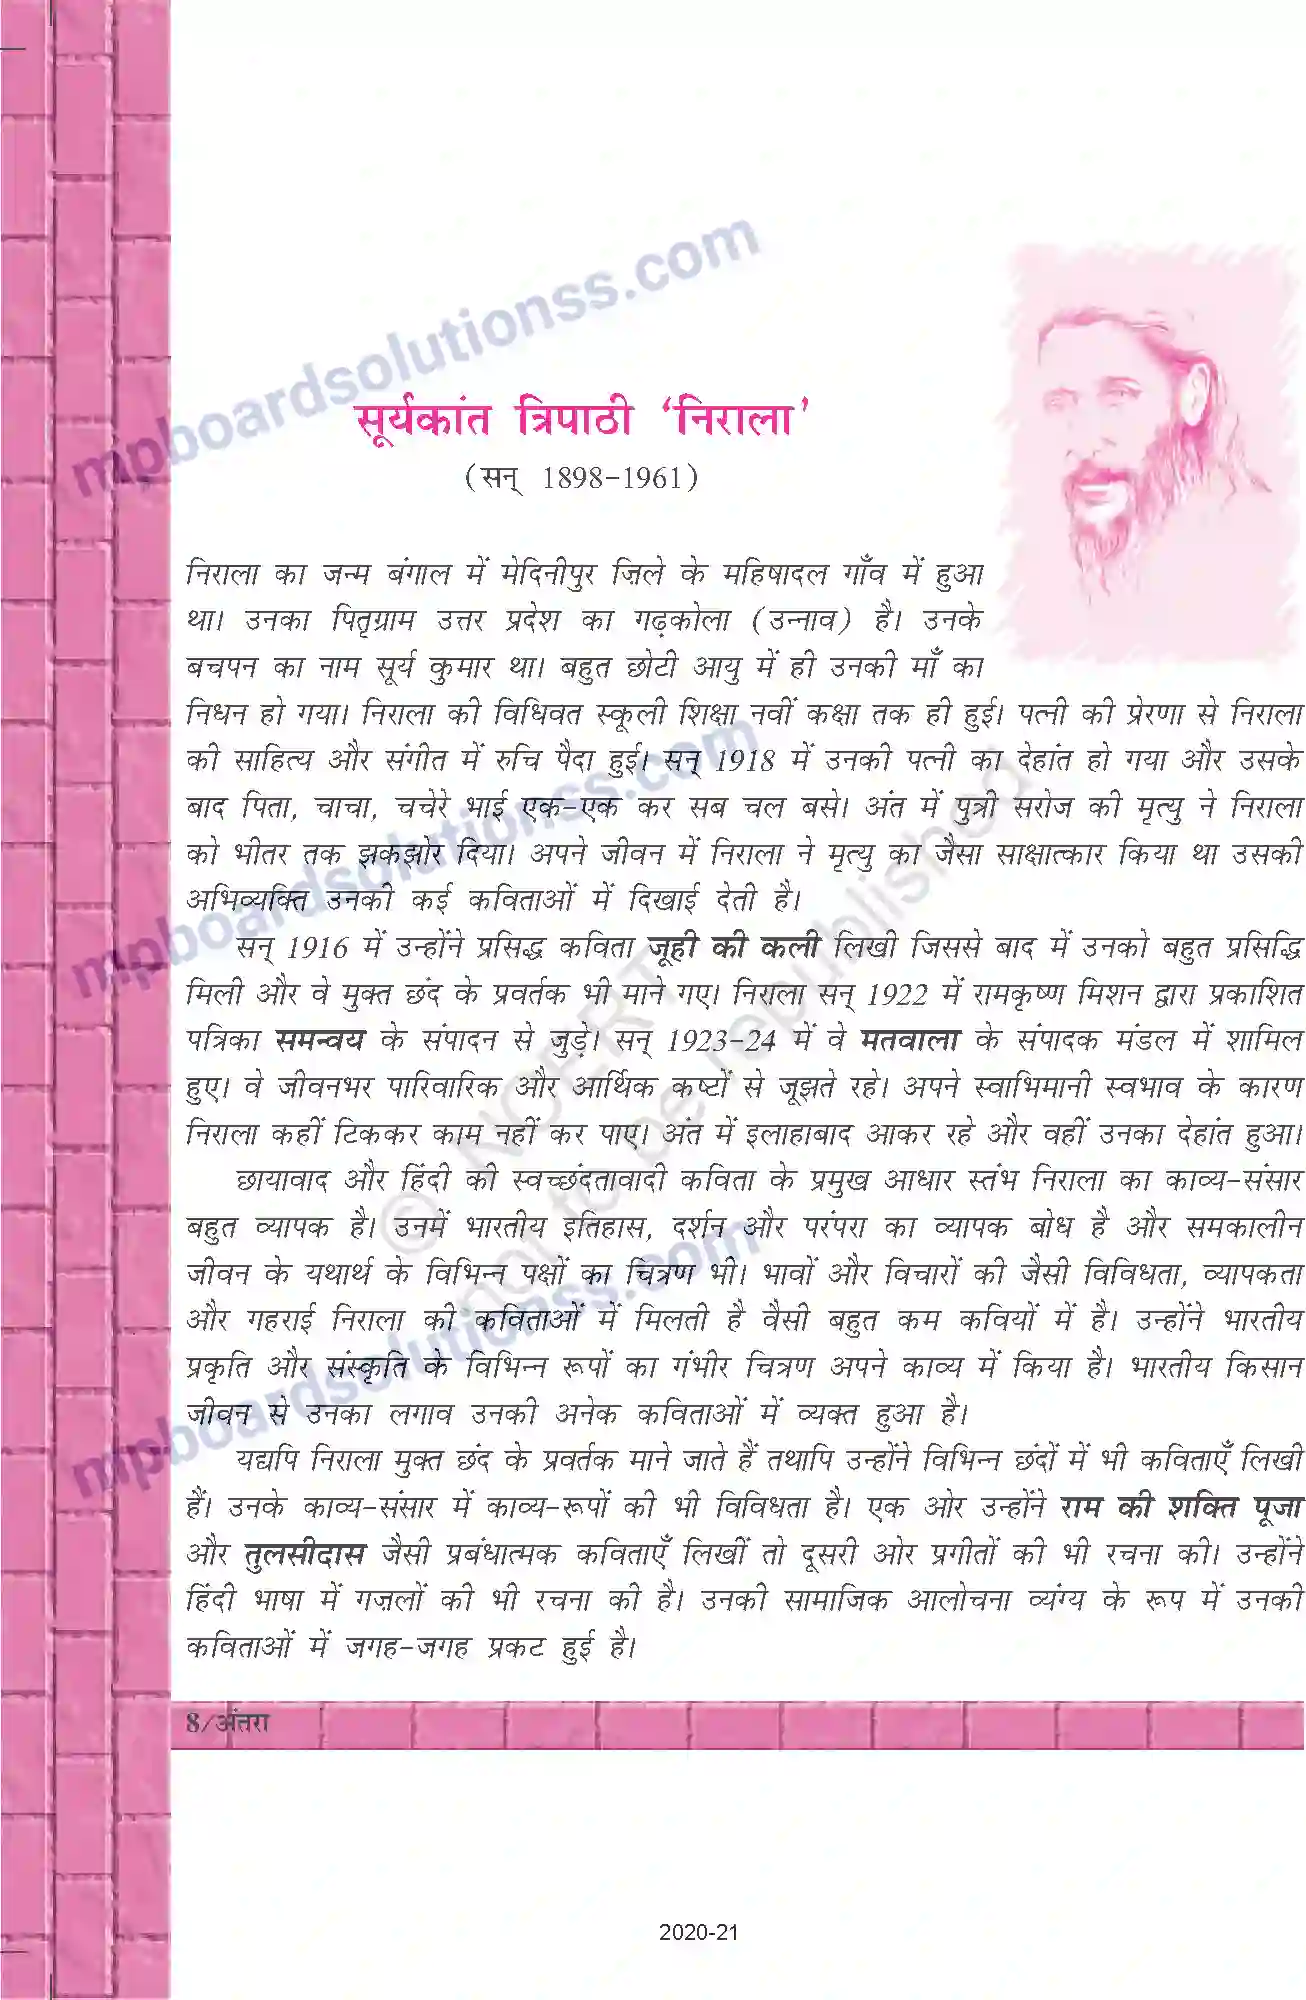 सूर्यकांत त्रिपाठी ‘निराला’
(सन् 1898-1961)
निराला का जन्म बंगाल में मेदिनीपुर ज़िले के महिषादल गाँव में हुआ
था। उनका पितृग्राम उत्तर प्रदेश का गढ़कोला (उन्नाव) है। उनके
बचपन का नाम सूर्य कुमार था। बहुत छोटी आयु में ही उनकी माँ का
निधन हो गया। निराला की विधिवत स्कूली शिक्षा नवीं कक्षा तक ही हुई। पत्नी की प्रेरणा से निराला
की साहित्य और संगीत में रुचि पैदा हुई। सन् 1918 में उनकी पत्नी का देहांत हो गया और उसके
बाद पिता, चाचा, चचेरे भाई एक-एक कर सब चल बसे। अंत में पुत्री सरोज की मृत्यु ने निराला
को भीतर तक झकझोर दिया। अपने जीवन में निराला ने मृत्यु का जैसा साक्षात्कार किया था उसकी
अभिव्यक्ति उनकी कई कविताओं में दिखाई देती है।
सन् 1916 में उन्होंने प्रसिद्ध कविता जूही की कली लिखी जिससे बाद में उनको बहुत प्रसिद्धि
मिली और वे मुक्त छंद के प्रवर्तक भी माने गए। निराला सन् 1922 में रामकृष्ण मिशन द्वारा प्रकाशित
पत्रिका समन्वय के संपादन से जुड़े। सन् 1923-24 में वे मतवाला के संपादक मंडल में शामिल
हुए। वे जीवनभर पारिवारिक और आर्थिक कष्टों से जूझते रहे। अपने स्वाभिमानी स्वभाव के कारण
निराला कहीं टिककर काम नहीं कर पाए। अंत में इलाहाबाद आकर रहे और वहीं उनका देहांत हुआ।
छायावाद और हिंदी की स्वच्छंदतावादी कविता के प्रमुख आधार स्तंभ निराला का काव्य-संसार
बहुत व्यापक है। उनमें भारतीय इतिहास, दर्शन और परंपरा का व्यापक बोध है और समकालीन
जीवन के यथार्थ के विभिन्न पक्षों का चित्रण भी। भावों और विचारों की जैसी विविधता, व्यापकता
और गहराई निराला की कविताओं में मिलती है वैसी बहुत कम कवियों में है। उन्होंने भारतीय
प्रकृति और संस्कृति के विभिन्न रूपों का गंभीर चित्रण अपने काव्य में किया है। भारतीय किसान
जीवन से उनका लगाव उनकी अनेक कविताओं में व्यक्त हुआ है।
यद्यपि निराला मुक्त छंद के प्रवर्तक माने जाते हैं तथापि उन्होंने विभिन्न छंदों में भी कविताएँ लिखी
हैं। उनके काव्य-संसार में काव्य-रूपों की भी विविधता है। एक ओर उन्होंने राम की शक्ति पूजा
और तुलसीदास जैसी प्रबंधात्मक कविताएँ लिखीं तो दूसरी ओर प्रगीतों की भी रचना की। उन्होंने
हिंदी भाषा में गज़लों की भी रचना की है। उनकी सामाजिक आलोचना व्यंग्य के रूप में उनकी
कविताओं में जगह-जगह प्रकट हुई है।
8/अंतरा
2020-21
mpboardsolutionss.com
mpboardsolutionss.com
mpboardsolutionss.com
© NCERT
not to be republished